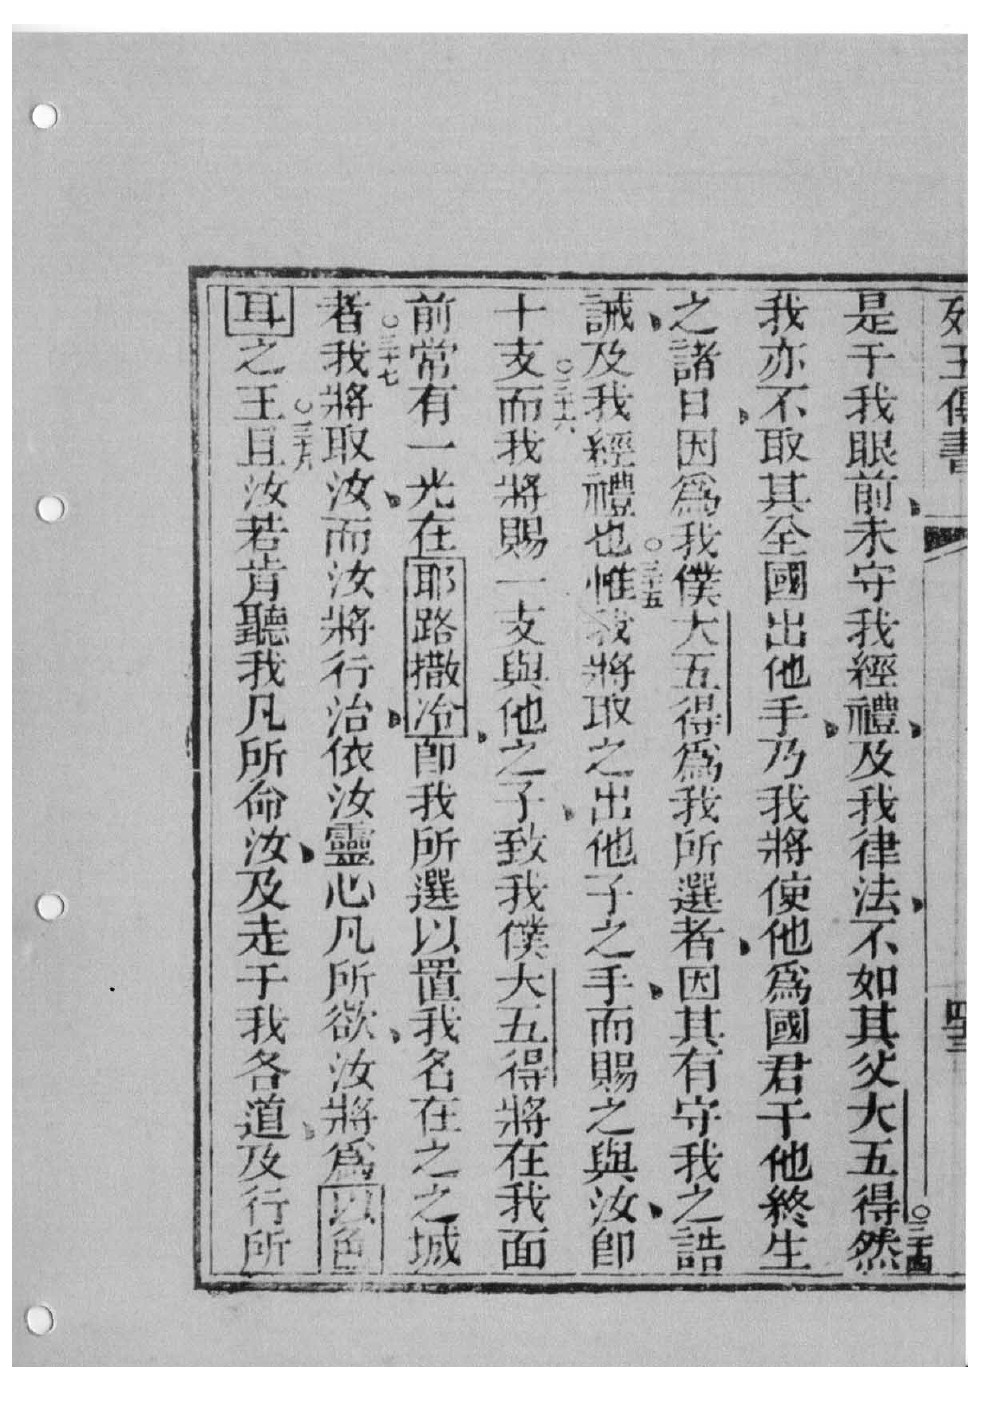 列王傳書
是于我眼前未守我經禮及我律法不如其父大五得○三十四然
我亦不取其全國出他手乃我將使他爲國君于他終生
之諸日因爲我僕大五得爲我所選者因其有守我之誥
誡及我經禮也○三十五惟我將取之出他子之手而賜之與汝卽
十支○三十六而我將賜一支與他之子致我僕大五得將在我面
前常有一光在耶路撒冷卽我所選以置我名在之之城
者○三十七我將取汝而汝將行治依汝靈心凡所欲汝將爲以色
耳之王○三十八且汝若肯聽我凡所命汝及走于我各道及行所